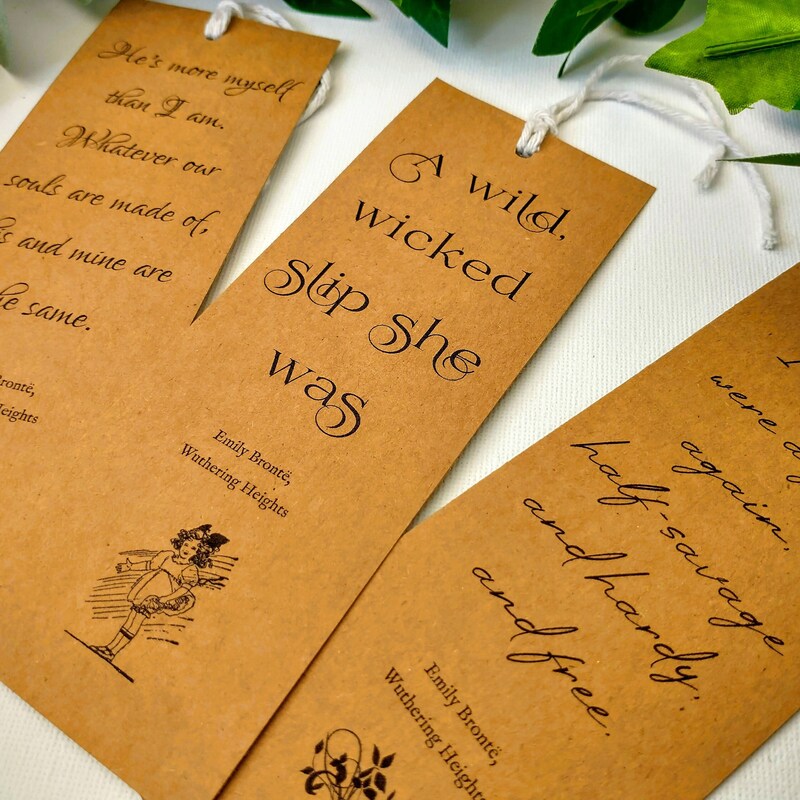 He's more myself
than I am.
Whatever our
souls are made of,
and mine are
same.
Brontë,
Heights
A wild,
wicked
slip she
was
Emily Brontë,
Wuthering Heights
I
were
again,
half-savage
and hardy,
and free.
Emily Brontë,
Wuthering Heights